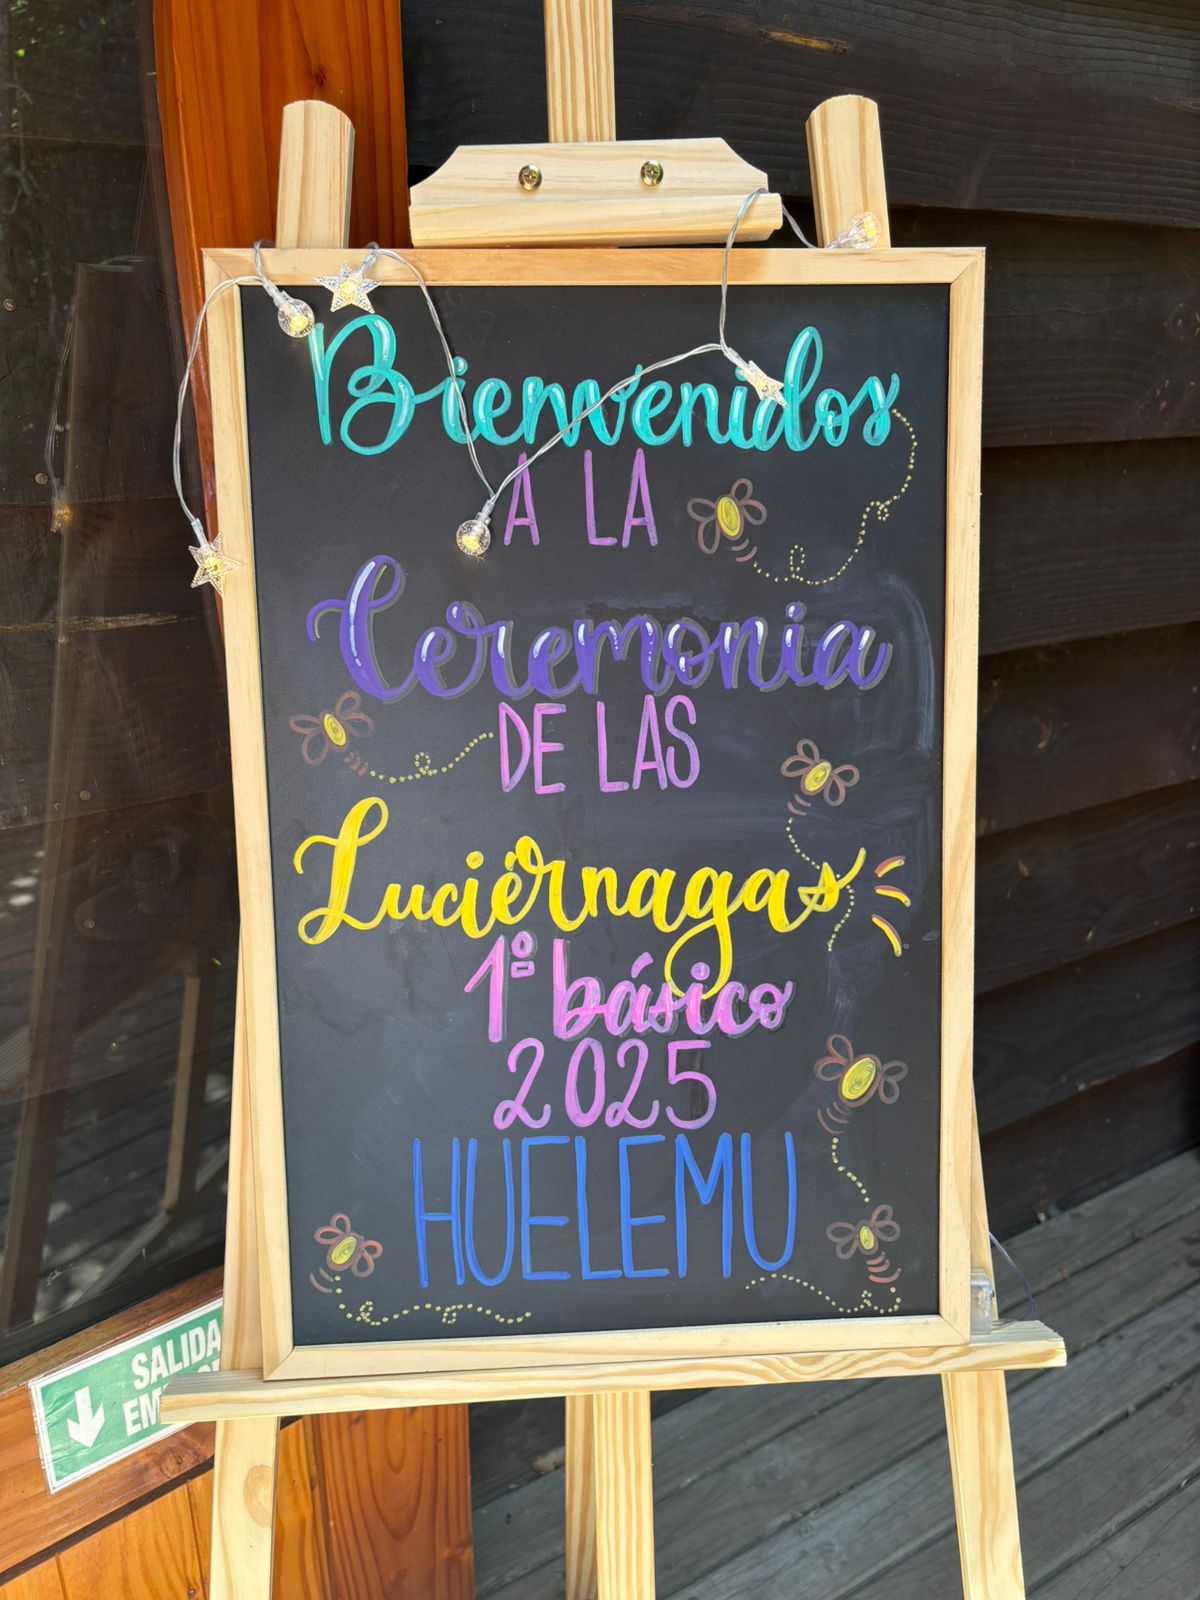 Bienvenidos
A LA
Ceremonia
DE LAS
Luciérnagas
1º básico
2025
HUELEMU
SALIDA